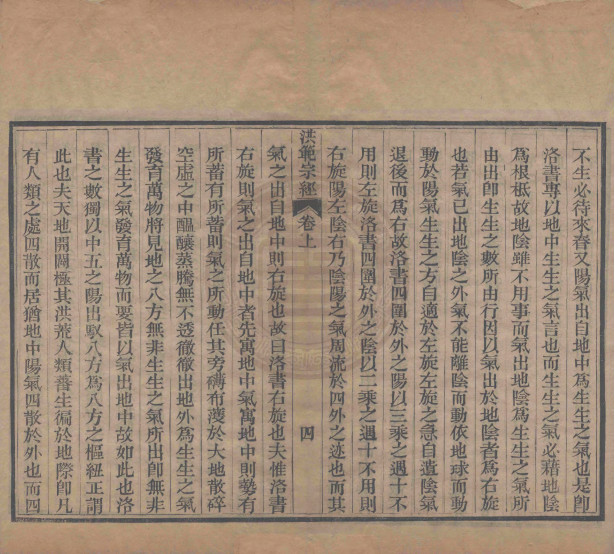 不生必待來春又陽氣出自地中爲生生之氣也是卽
洛書專以地中生生之氣言也而生生之氣必藉地陰
爲根柢故地陰雖不用事而氣出地陰爲生生之氣所
由出卽生生之數所由行因以氣出於地陰者爲右旋
也若氣已出地陰之外氣不能離陰而動依地球而動
動於陽氣生生之方自適於左旋左旋之急自遺陰氣
退後而爲右故洛書四圍於外之陽以三乘之遇十不
用則左旋洛書四圍於外之陰以二乘之遇十不用則
右旋陽左陰右乃陰陽之氣周流於四外之迹也而其
洪範宗經
卷上
四
氣之出自地中則右旋也故曰洛書右旋也夫惟洛書
右旋則氣之出自地中者先寓地中氣寓地中則勢有
所蓄有所蓄則氣之所動任其旁礴布濩於大地散碎
空虛之中醞釀蒸騰無不透徹徹出地外爲生生之氣
發育萬物將見地之八方無非生生之氣所出卽無非
生生之氣發育萬物而要皆以氣出地中故如此也洛
書之數獨以中五之陽出馭八方爲八方之樞紐正謂
此也夫天地開闢極其洪荒人類蕃生徧於地際卽凡
有人類之處四散而居猶地中陽氣四散於外也而四